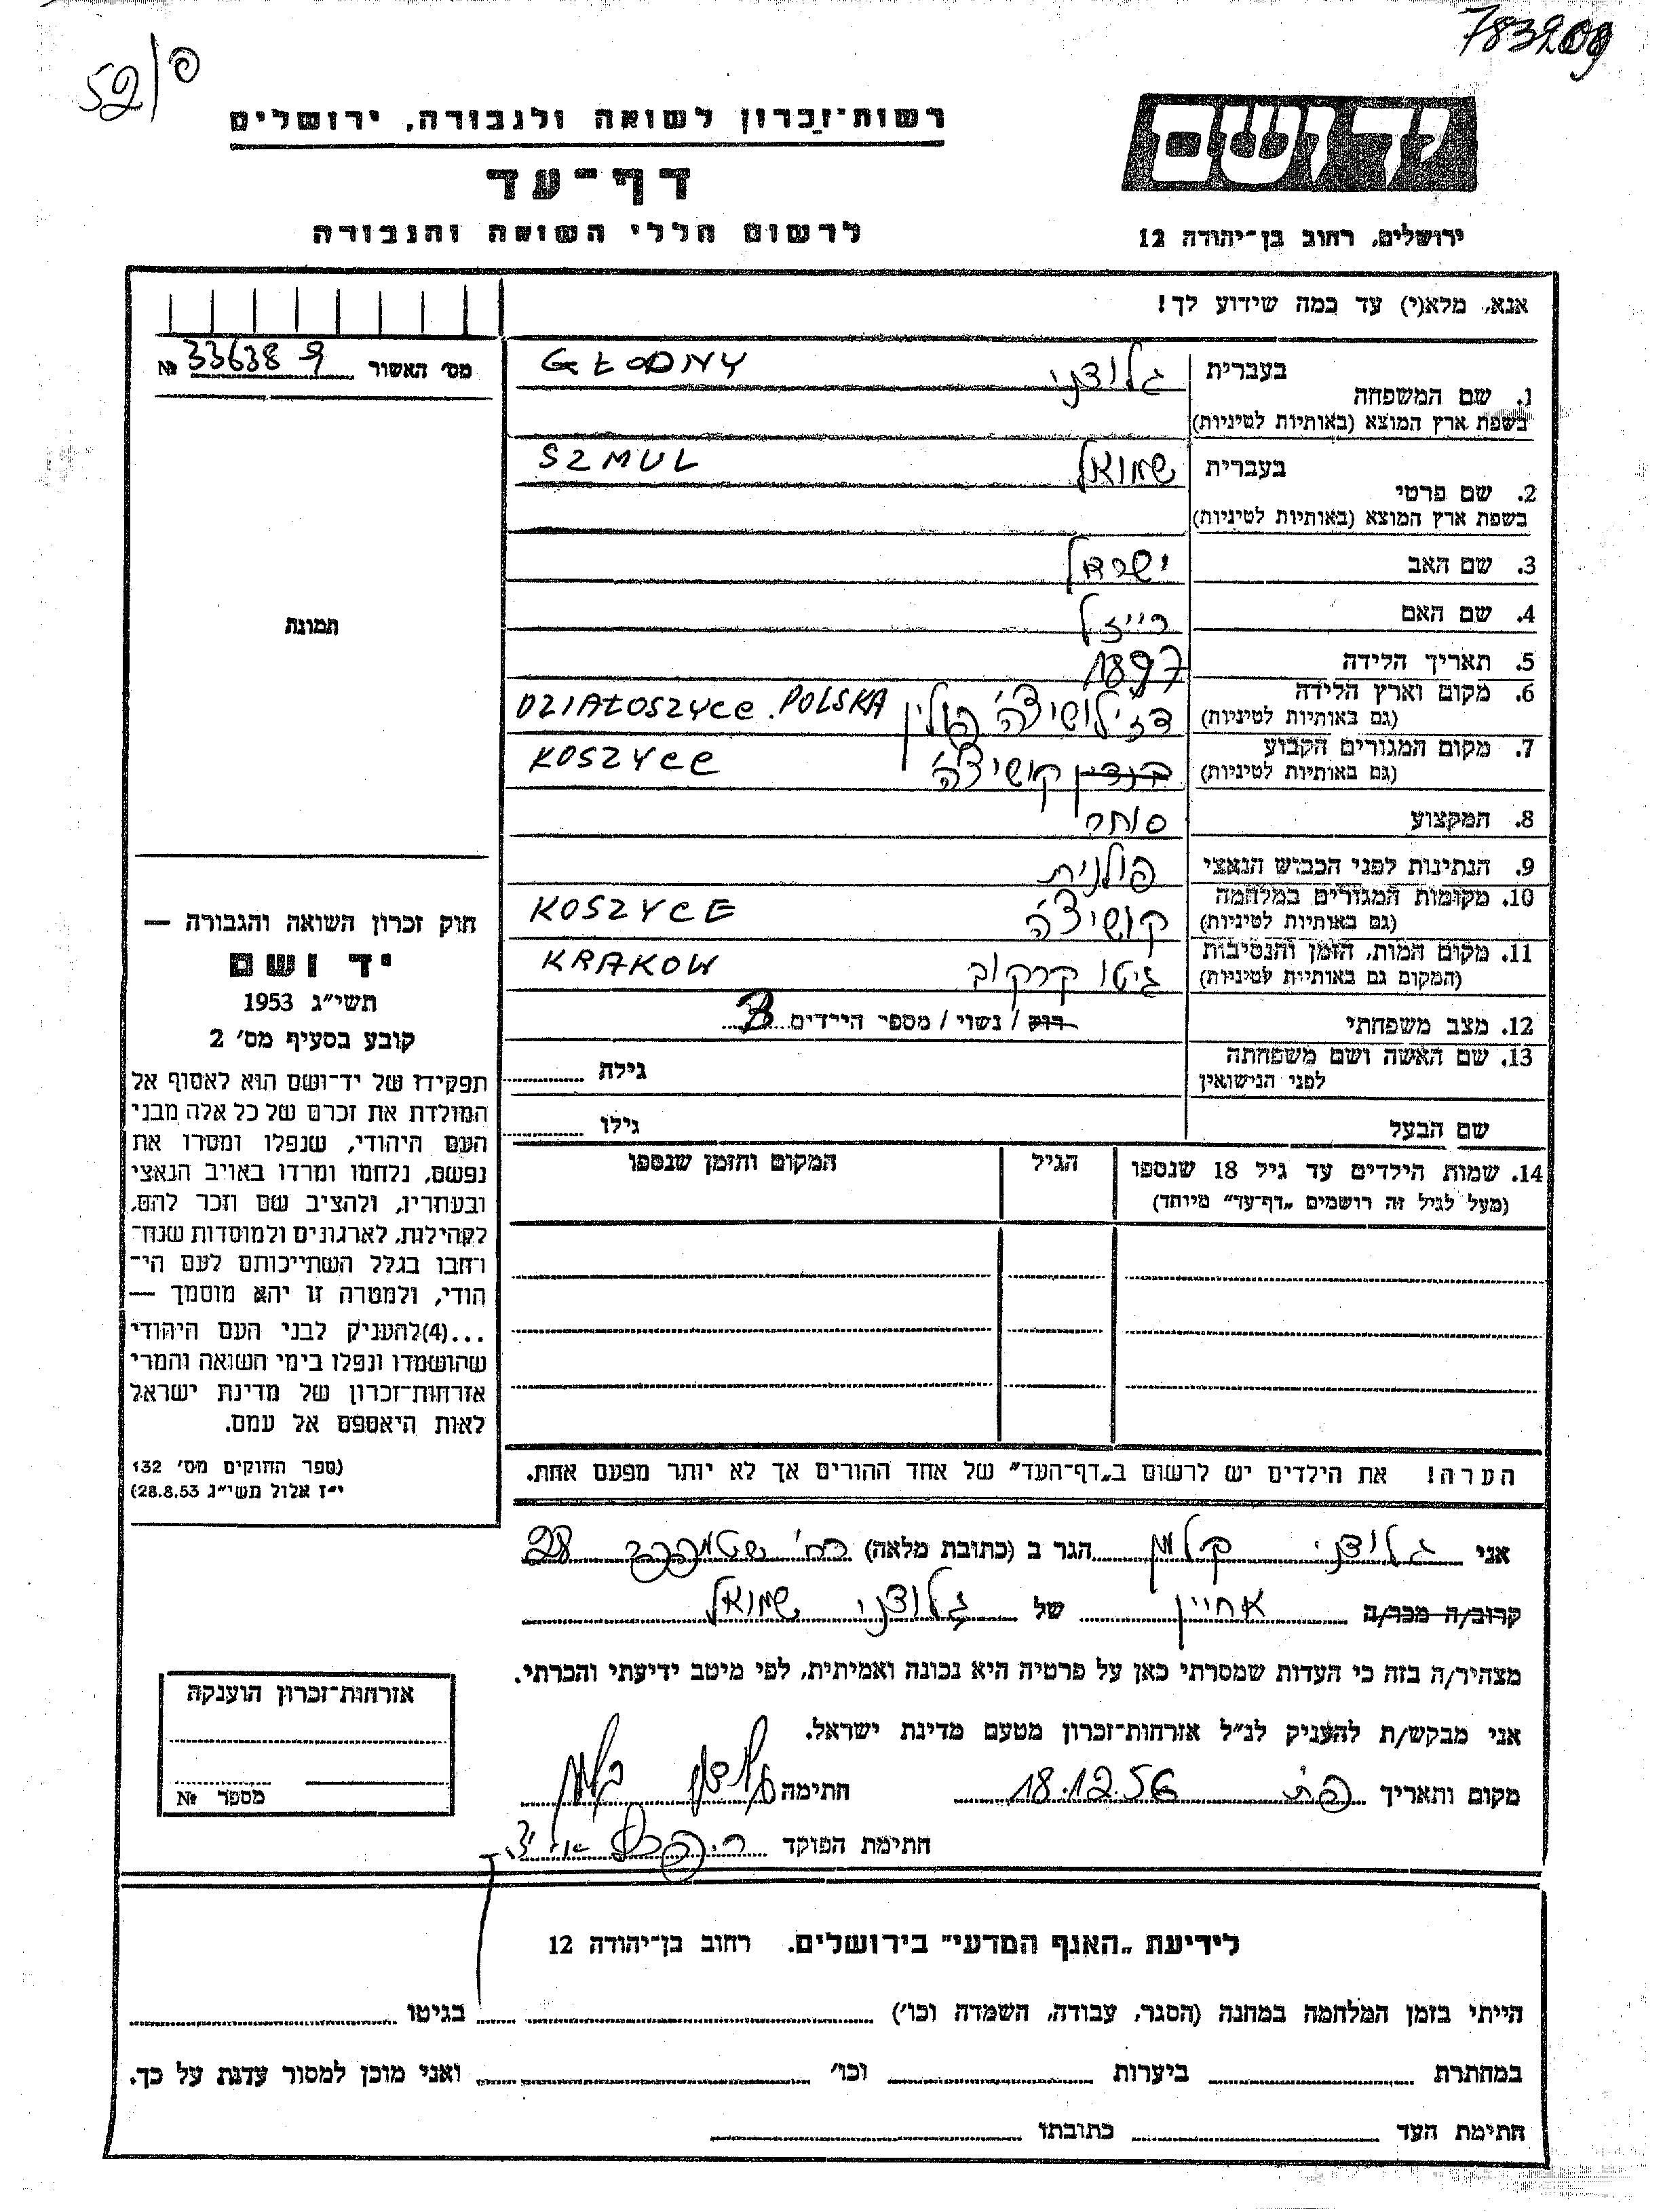 783209
52/פ
רשות־זכרון לשואה ולגבורה, ירושלים
דף־עד
לרשום חללי השואה והגבורה
יד ושם
ירושלים, רחוב בן־יהודה 12
אנא, מלא(י) עד כמה שידוע לך!
מס׳ האשור 336389 №
1. שם המשפחה בעברית גלודני GŁODNY
בשפת ארץ המוצא (באותיות לטיניות)
2. שם פרטי בעברית שמואל SZMUL
בשפת ארץ המוצא (באותיות לטיניות)
3. שם האב ישראל
4. שם האם רייזל
5. תאריך הלידה 1897
6. מקום וארץ הלידה דז׳לושיצה׳ פולין DZIAŁOSZYCE. POLSKA
(גם באותיות לטיניות)
7. מקום המגורים הקבוע קושיצה׳ KOSZYCE
(גם באותיות לטיניות)
8. המקצוע סוחר
9. הנתינות לפני הכבוש הנאצי פולנית
10. מקומות המגורים במלחמה קושיצ׳ה KOSZYCE
(גם באותיות לטיניות)
11. מקום המות, הזמן והנסיבות גיטו קרקוב KRAKOW
(המקום גם באותיות לטיניות)
12. מצב משפחתי רוק / נשוי / מספר הילדים 3
13. שם האשה ושם משפחתה לפני הנישואין גילה
שם הבעל גילו
14. שמות הילדים עד גיל 18 שנספו הגיל המקום והזמן שנספו
(מעל לגיל זה רושמים „דף־עד״ מיוחד)
הערה! את הילדים יש לרשום ב„דף־העד״ של אחד ההורים אך לא יותר מפעם אחת.
תמונה
חוק זכרון השואה והגבורה —
יד ושם
תשי״ג 1953
קובע בסעיף מס׳ 2
תפקידו של יד־ושם הוא לאסוף אל
המולדת את זכרם של כל אלה מבני
העם היהודי, שנפלו ומסרו את
נפשם, נלחמו ומרדו באויב הנאצי
ובעוזריו, ולהציב שם וזכר להם,
לקהילות, לארגונים ולמוסדות שנח־
רבו בגלל השתייכותם לעם הי־
הודי, ולמטרה זו יהא מוסמך —
...(4)להעניק לבני העם היהודי
שהושמדו ונפלו בימי השואה והמרי
אזרחות־זכרון של מדינת ישראל
לאות היאספם אל עמם.
(ספר החוקים מס׳ 132
י״ז אלול תשי״ג 28.8.53)
אני גלודני קלמן הגר ב (כתובת מלאה) רח׳ שטמפפר 28
קרוב/ה מכר/ה אחיין של גלודני שמואל
מצהיר/ה בזה כי העדות שמסרתי כאן על פרטיה היא נכונה ואמיתית, לפי מיטב ידיעתי והכרתי.
אני מבקש/ת להעניק לנ״ל אזרחות־זכרון מטעם מדינת ישראל.
מקום ותאריך פ״ת 18.12.56 חתימה גלודני קלמן
חתימת הפוקד
אזרחות־זכרון הוענקה
מספר №
לידיעת „האגף המדעי״ בירושלים, רחוב בן־יהודה 12
הייתי בזמן המלחמה במחנה (הסגר, עבודה, השמדה וכו׳) בגיטו
במחתרת ביערות וכו׳ ואני מוכן למסור עדות על כך.
חתימת העד כתובתו